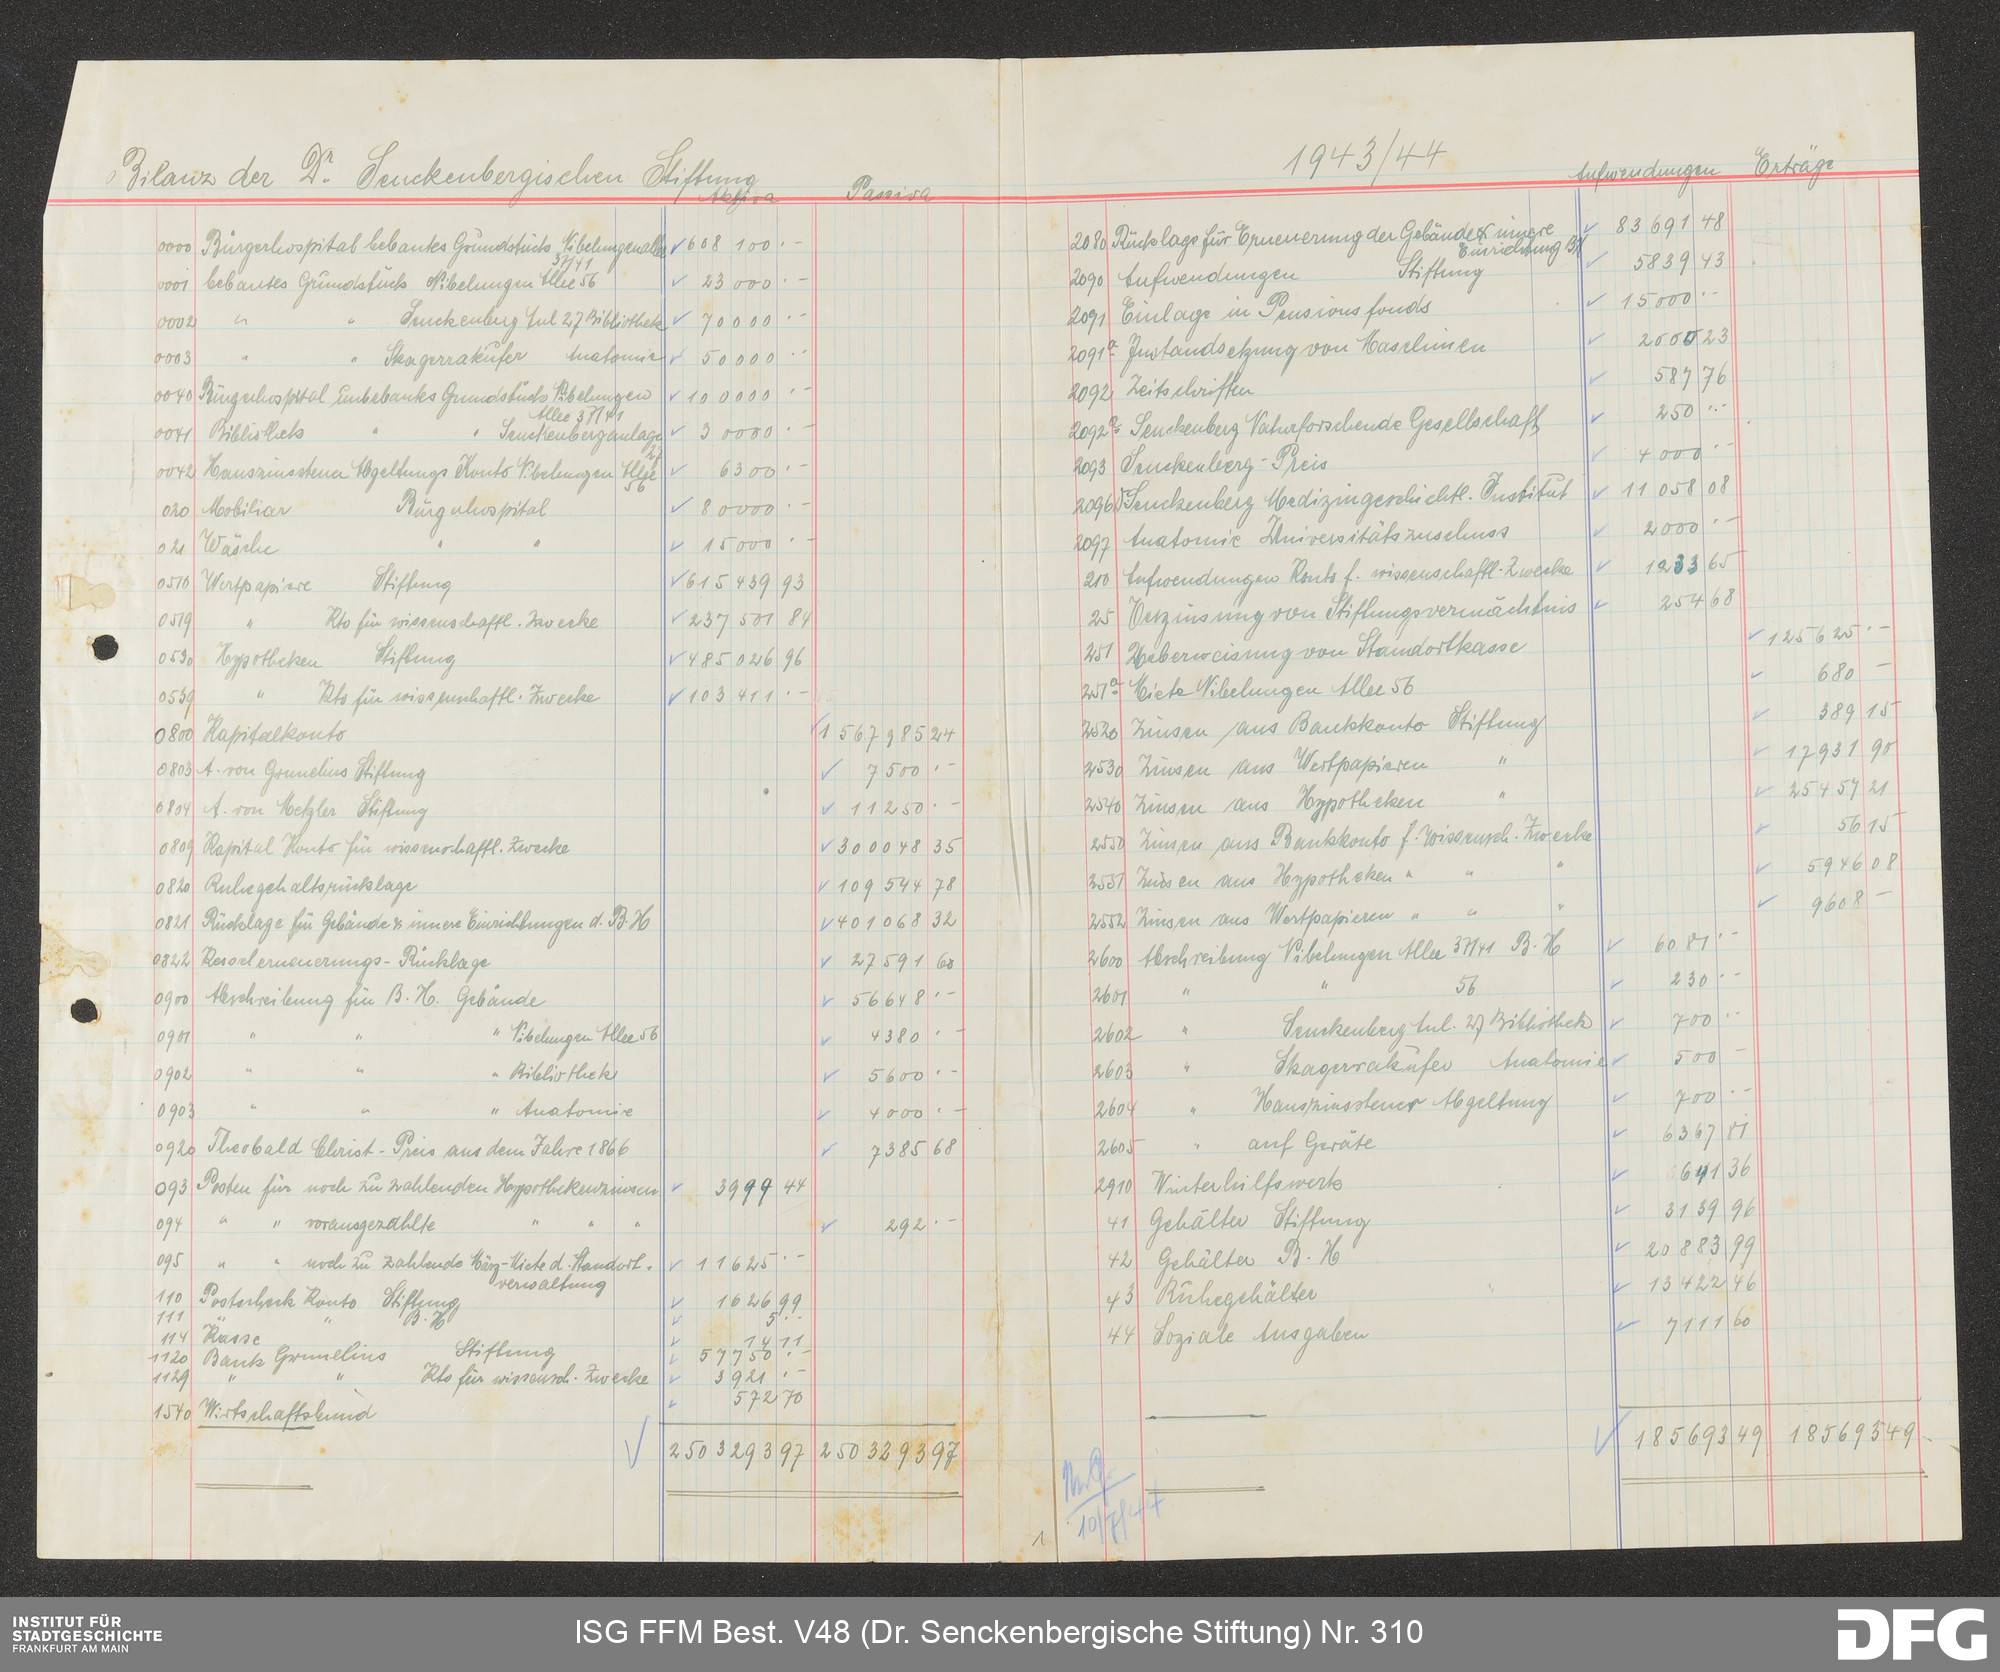 Bilanz der Dr. Senckenbergischen Stiftung
Aktiva Passiva
0000 Bürgerhospital bebautes Grundstück Nibelungenallee 37/41 608 100.–
0001 bebautes Grundstück Nibelungen Allee 56 23 000.–
0002 " " Senckenberg Anl 27 Bibliothek 70000.–
0003 " " Skagerrakufer Anatomie 50000.–
0040 Bürgerhospital unbebautes Grundstück Nibelungen Allee 37/41 100000.–
0041 Bibliothek " " Senckenberganlage 27 30000.–
0042 Hauszinssteuer Abgeltungs Konto Nibelungen Allee 56 6300.–
020 Mobiliar Bürgerhospital 80000.–
021 Wäsche " " 15000.–
0510 Wertpapiere Stiftung 615 439 93
0519 " Kto für wissenschaftl. Zwecke 237 501 84
0530 Hypotheken Stiftung 485 026 96
0539 " Kto für wissenschaftl. Zwecke 103 411.–
0800 Kapitalkonto 1 567 985 24
0803 A. von Grunelius Stiftung 7500.–
0804 A. von Metzler Stiftung 11250.–
0809 Kapital Konto für wissenschaftl. Zwecke 300048 35
0820 Ruhegehaltsrücklage 109 544 78
0821 Rücklage für Gebäude & innere Einrichtungen d. B. H 401068 32
0822 Kesselerneuerungs-Rücklage 27591 60
0900 Abschreibung für B. H. Gebäude 56648.–
0901 " " " Nibelungen Allee 56 4380.–
0902 " " " Bibliothek 5600.–
0903 " " " Anatomie 4000.–
0920 Theobald Christ-Preis aus dem Jahre 1866 7385 68
093 Posten für noch zu zahlenden Hypothekenzinsen 3999 44
094 " " vorausgezahlte " " " 292.–
095 " " noch zu zahlende März-Miete d. Standort-verwaltung 11625.–
110 Postscheck Konto Stiftung 1626 99
111 " " B. H 5.–
114 Kasse 14 11
1120 Bank Grunelius Stiftung 57750.–
1129 " " Kto für wissensch. Zwecke 3921.–
1540 Wirtschaftsbund 572 70
2503293 97 2503293 97
1943/44
Aufwendungen Erträge
2080 Rücklage für Erneuerung der Gebäude & innere Einrichtung BH 83691 48
2090 Aufwendungen Stiftung 5839 43
2091 Einlage in Pensionsfonds 15000.–
2091a Instandsetzung von Maschinen 2000 23
2092 Zeitschriften 587 76
2092a Senckenberg Naturforschende Gesellschaft 250.–
2093 Senckenberg-Preis 4000.–
2096 Dr. Senckenberg Medizingeschichtl. Institut 11058 08
2097 Anatomie Universitätszuschuss 2000.–
210 Aufwendungen Konto f. wissenschaftl. Zwecke 1233 65
25 Verzinsung von Stiftungsvermächtnis 254 68
251 Ueberweisung von Standortkasse 125625.–
251a Miete Nibelungen Allee 56 680 –
2520 Zinsen aus Bankkonto Stiftung 389 15
2530 Zinsen aus Wertpapieren " 17931 90
2540 Zinsen aus Hypotheken " 25457 21
2550 Zinsen aus Bankkonto f. wissensch. Zwecke 56 15
2551 Zinsen aus Hypotheken " " " 5946 08
2552 Zinsen aus Wertpapieren " " " 9608 –
2600 Abschreibung Nibelungen Allee 37/41 B. H 6081.–
2601 " " 56 230.–
2602 " Senckenberg Anl. 27 Bibliothek 700.–
2603 " Skagerrakufer Anatomie 500 –
2604 " Hauszinssteuer Abgeltung 700.–
2605 " auf Geräte 6367 01
2910 Winterhilfswerk 641 36
41 Gehälter Stiftung 3139 96
42 Gehälter B. H 20883 99
43 Ruhegehälter 13422 46
44 Soziale Ausgaben 7111 60
185693 49 185693 49
10/7/44
1
INSTITUT FÜR
STADTGESCHICHTE
FRANKFURT AM MAIN
ISG FFM Best. V48 (Dr. Senckenbergische Stiftung) Nr. 310
DFG